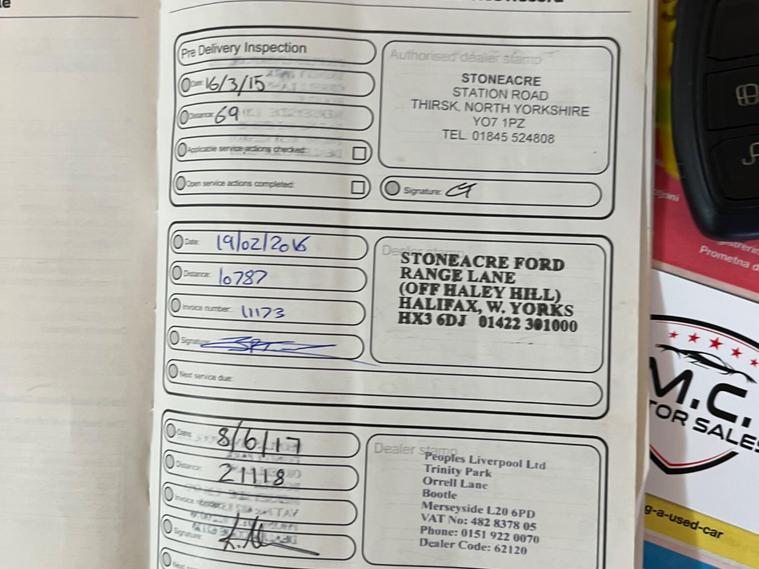 Pre Delivery Inspection
Date: 16/3/15
Distance: 69
Applicable service actions checked:
Open service actions completed:
Authorised dealer stamp
STONEACRE
STATION ROAD
THIRSK, NORTH YORKSHIRE
YO7 1PZ
TEL. 01845 524808
Signature:
Date: 19/02/2016
Distance: 10787
Invoice number: 11173
Signature:
Next service due:
Dealer stamp
STONEACRE FORD
RANGE LANE
(OFF HALEY HILL)
HALIFAX, W. YORKS
HX3 6DJ 01422 301000
Date: 8/6/17
Distance: 21118
Invoice number:
Signature:
Next
Dealer stamp
Peoples Liverpool Ltd
Trinity Park
Orrell Lane
Bootle
Merseyside L20 6PD
VAT No: 482 8378 05
Phone: 0151 922 0070
Dealer Code: 62120
Prometna d
M.C.
TOR SALES
g-a-used-car